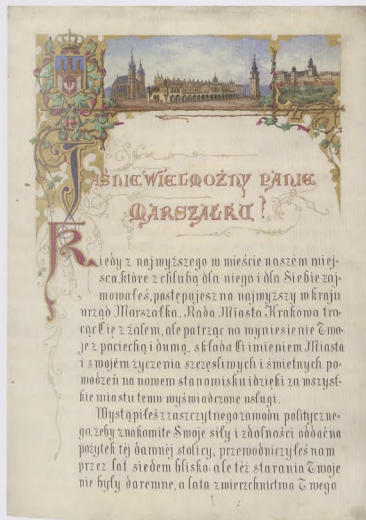 JAŚNIE WIELMOŻNY PANIE
MARSZAŁKU!
Kiedy z najwyższego w mieście naszém miej-
sca, które z chlubą dla niego i dla Siebie zaj-
mowałeś, postępujesz na najwyższy w kraju
urząd Marszałka, Rada Miasta Krakowa tra-
cąc Cię z żalem, ale patrząc na wyniesienie Two-
je z pociechą i dumą, składa Ci imieniem Miasta
i swojém życzenia szczęśliwych i świetnych po-
wodzeń na nowem stanowisku i dzięki za wszyst-
kie miastu temu wyświadczone usługi.
Wystąpiłeś z zaszczytnego zawodu polityczne-
go, żeby znakomite Swoje siły i zdolności oddać na
pożytek téj dawnéj stolicy, przewodniczyłeś nam
przez lat siedem blisko, ale téż starania Twoje
nie były daremne, a lata zwierzchnictwa Twego